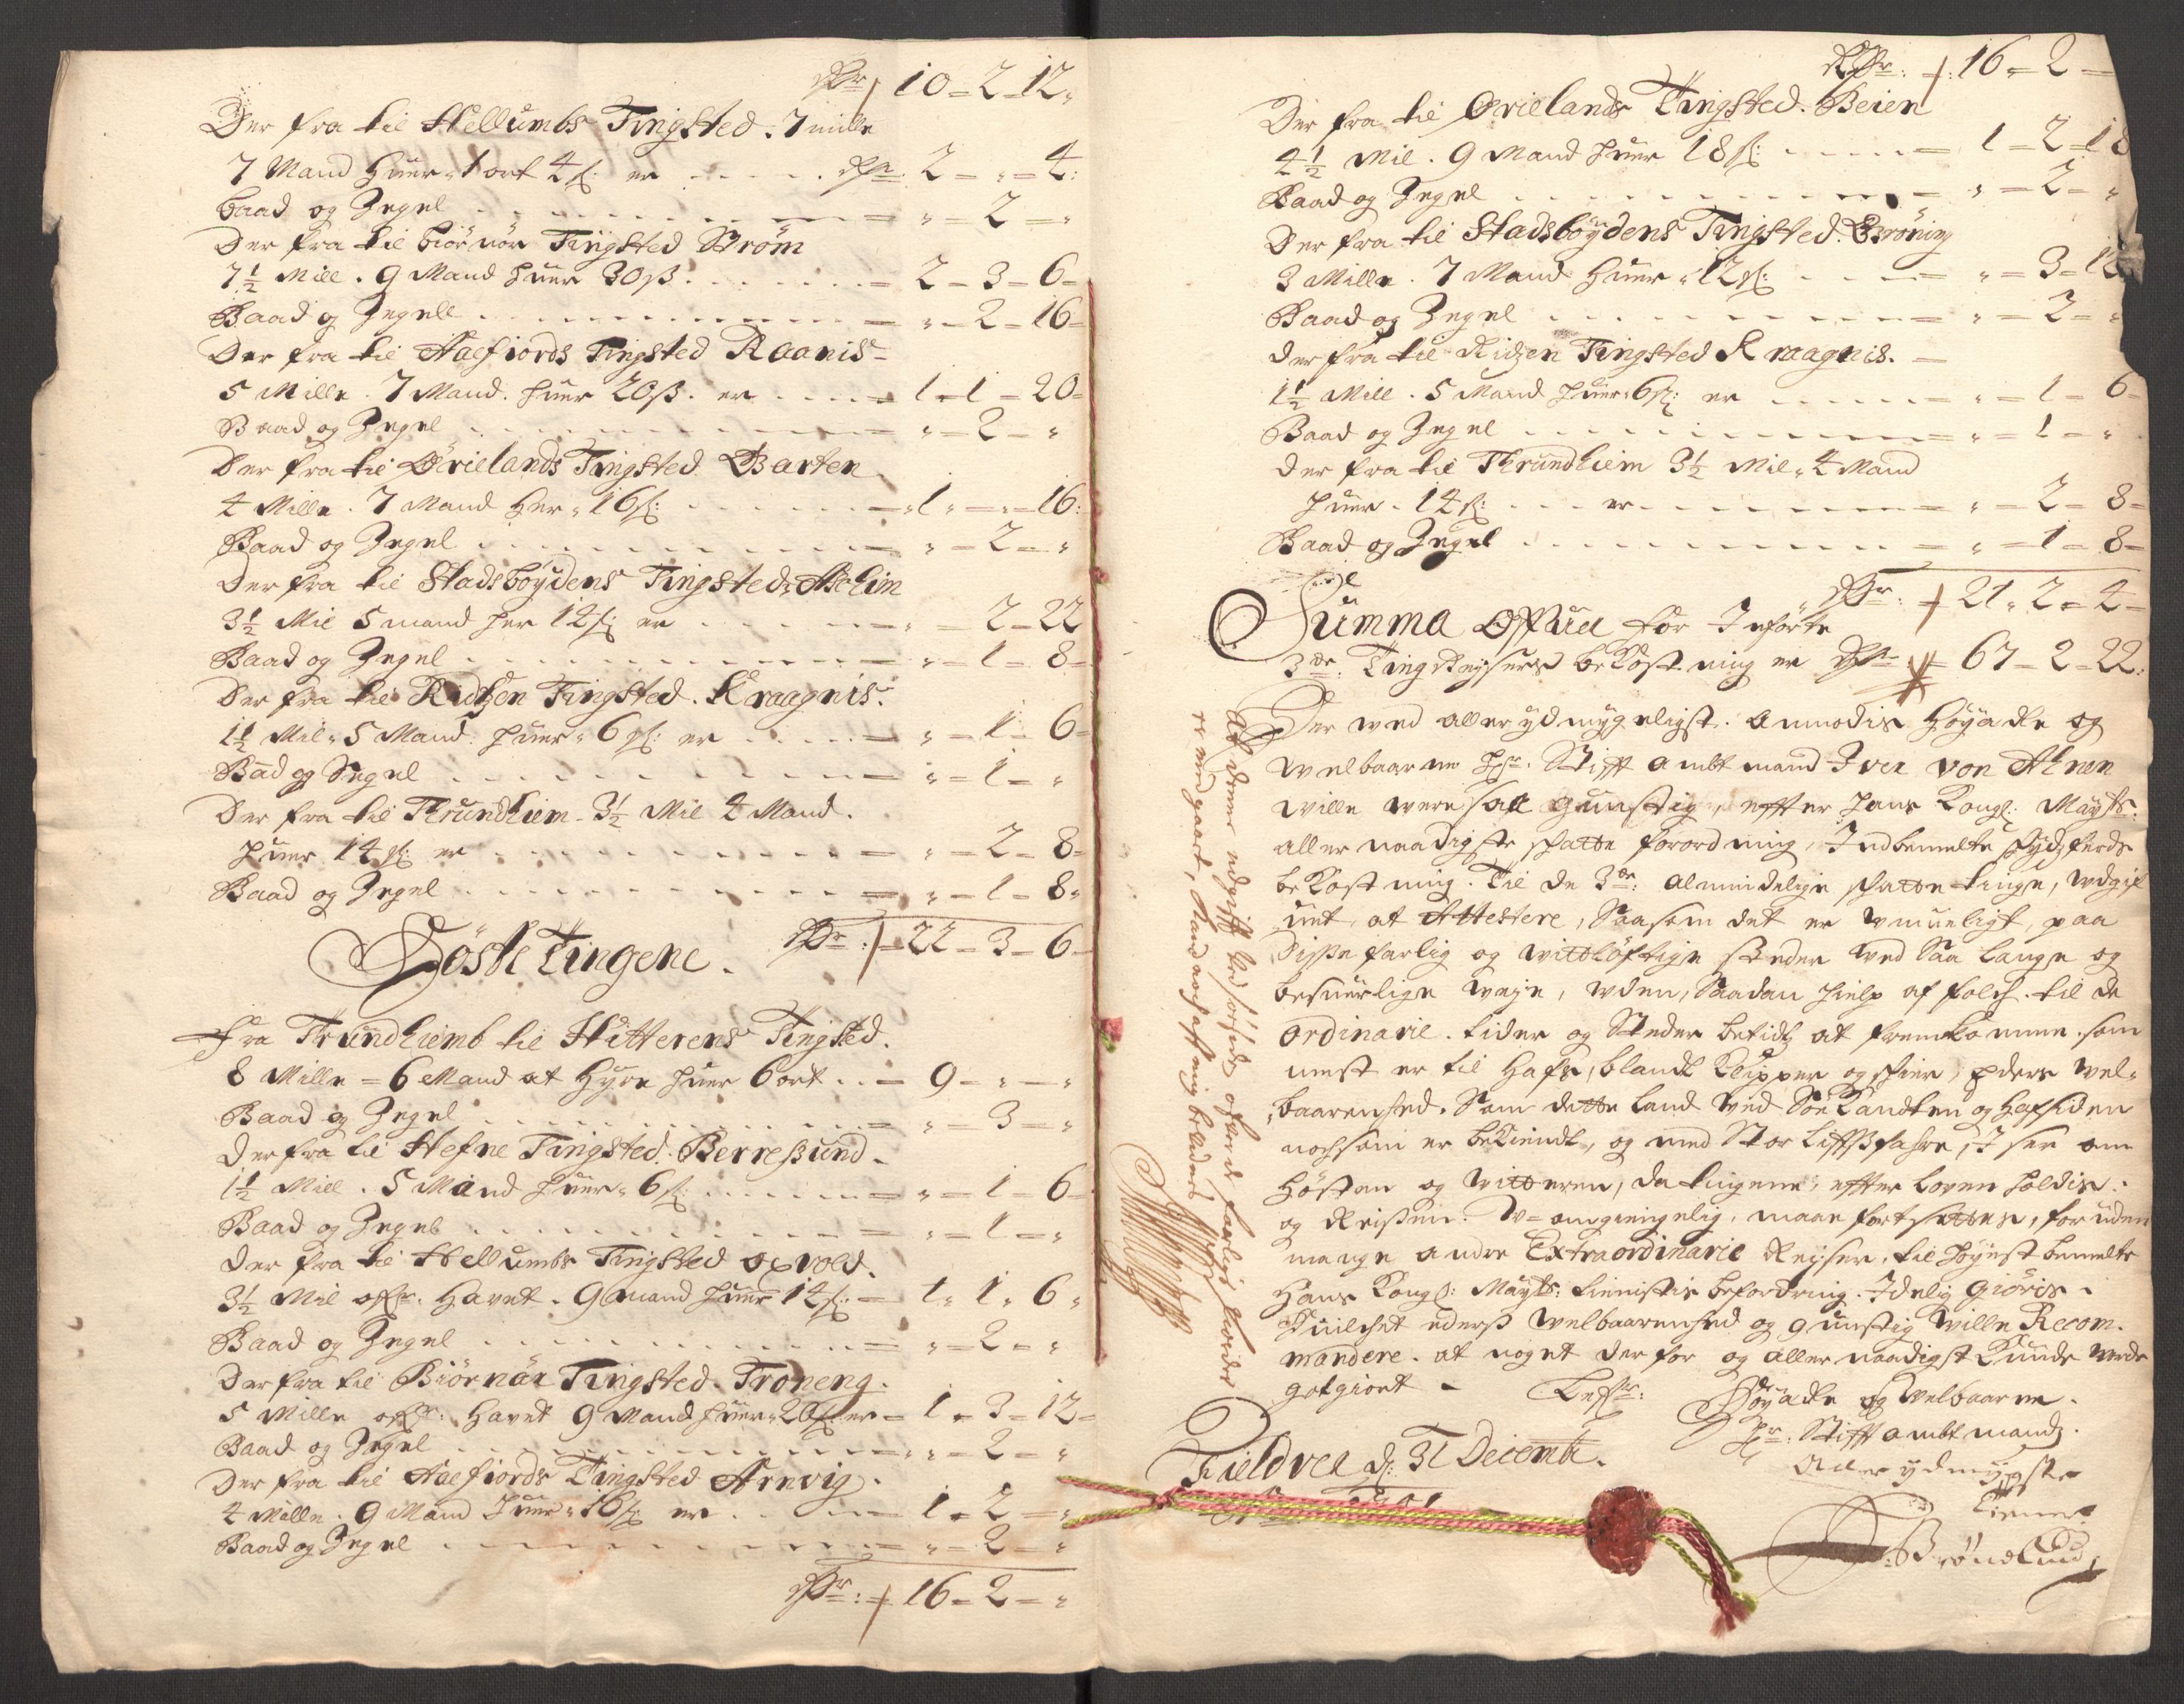 Rdr 10 - 2 - 12
Der fra til Hellumbs Tingsted. 7 mille
7 Mand Huer 1 ort 4 s: er . . . . Rdr. 2 - " - 4:
baad og Segel . . . . " - 2 - "
Der fra til biörnör Tingsted Strøm
7½ Mill. 9 Mand huer 30 s. . . . 2 - 3 - 6
Baad og Segell . . . . " - 2 - 16
Der fra til Aaefiords Tingsted Raanis
5 Mille. 7 Mand. huer 20 s. er . . . 1 - 1 - 20
Baad og Segel . . . . " - 2 - "
Der fra til Ørielands Tingsted Barten
4 Mille. 7 Mand Her 16 s: . . . . 1 - " - 16:
Baad og Segel . . . . " - 2 - "
Der fra til Stadsboydens Tingsted Askeim
3½ Mil 5 mand her 14 s: er . . . . " - 2 - 22
Baad og Segel . . . . " - 1 - 8
Der fra til Ridtzen Tingsted. Kraagnis.
1½ Mil 5 Mand. huer 6 s: er . . . . " - 1 - 6
Bad og Segel . . . . " - 1 - "
Der fra til Trundhiem 3½ Mil 4 Mand.
huer 14 s: er . . . . " - 2 - 8
Baad og Segel . . . . " - 1 - 8
Rdr: 22 - 3 - 6
Höste Tingene.
Fra Trundhiemb til Hitterens Tingsted.
8 Mille = 6 Mand at Hyre huer 6 ort . . 9 - " - "
Baad og Segel . . . . " - 3 - "
Der fra til Hefne Tingsted. Berresund
1½ Mill. 5 Mand huer 6 s: . . . . " - 1 - 6
Baad og Segel . . . . " - 1 - "
Der fra til Hellumbs Tingsted oxvold.
3½ Mil ofr. Havet. 9 mand huer 14 s: 1 - 1 - 6
Baad og Segel . . . . " - 2 - "
Der fra til Biörnär Tingsted. Troneng.
5 Mille ofr. Havet 9 Mand huer 20 s: er 1 - 3 - 12
Baad og Segel . . . . " - 2 - "
Der fra til Aaefiords Tingsted Arnvig.
4 Mille. 9 Mand Huer 16 s: er . . 1 - 2 - "
Baad og Segel . . . . " - 2 - "
Rdr: 16 - 2 - "
Rdr: 16 - 2 -
Der fra til Ørielands Tingsted. Beien
4½ Mil. 9 Mand huer 18 s: . . . . 1 - 2 - 18
Baad og Segel . . . . " - 2 - "
Der fra til Stadsböydens Tingsted. Brøning
3 Mille. 7 Mand Huer 12 s: . . . . " - 3 - 12
Baad og Segel . . . . " - 2 - "
der fra til Ridzen Tingsted Kraagnis.
1½ Mill. 5 Mand huer 6 s: er . . . . " - 1 - 6
Baad og Segel . . . . " - 1 - "
der fra til Trundhiem 3½ Mil 4 Mand
huer 14 s: . . . er . . . . " - 2 - 8
Baad og Segel . . . . " - 1 - 8
Rdr: 21 - 2 - 4
Summa Offuer for Inførte
3de: Tingreysers bekostning er Rdr 67 - 2 - 22:
Der ved aller ydmygeligst. anmodis Høyædle og
Welbaarne Hr. Stifft ambtmand Iver von Ahnen
wille were saa gunstig, effter hans Kongl: Mayts.
aller naadigste skatte forordning, Indbemelte skydsferds
bekostning. Til de 3de: almindelige skatte tinge, udgif
uet, at Attestere, Saasom det er umueligt, paa
disse farlig og witløftige steder ved saa lange og
besuerlige Weye, uden, saadan hielp af folch til de
ordinarie. tider og Steder betids at fremkomme. som
mest er til Hafs, blandt Klipper og skier, Eders Wel-
baarenhed. Som dette land ved Söe Kandten og Hafsiden
nochsom er bekiendt, og med Stor liffsfahre, I ser om
Høsten og vitteren, da tingene, effter loven holdis.
og Reisen. U-omgiengelig, maae fortsettes, foruden
mange andre Extraordinarie Reyser, til høystbemelte
Hans Kongl: Mayts: tienistis befordring. Idelig giöris.
Huilchet eders Welbaarenhed og gunstig Wille Recom-
mandere. at noget derfor og aller naadigst Kunde vorde
gotgiort -
Høyædle og Welbaarne.
Hr: Stifft ambtmands.
aller ydmygste
tiener
Brönlund
Fieldvær d: 31 Decemb.